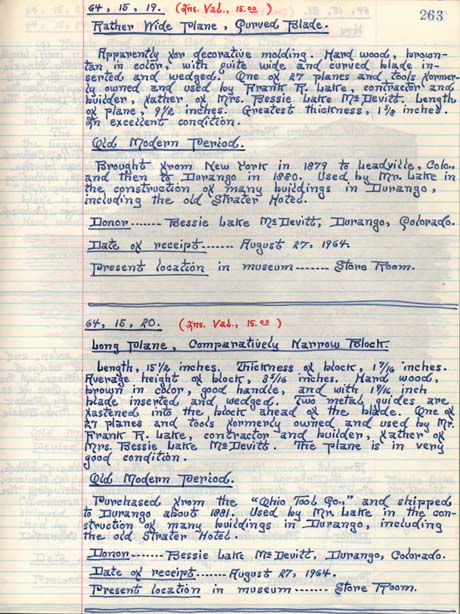 263
64, 15, 19. (Ins. Val., 15.00)
Rather Wide Plane, Curved Blade.
Apparently for decorative molding. Hard wood, brown-
tan in color, with quite wide and curved blade in-
serted and wedged. One of 27 planes and tools former-
ly owned and used by Frank R. Lake, contractor and
builder, father of Mrs. Bessie Lake McDevitt. Length
of plane, 9 1/2 inches. Greatest thickness, inches.
In excellent condition.
Old Modern Period.
Brought from New York in 1879 to Leadville, Colo.,
and then to Durango in 1880. Used by Mr. Lake in
the construction of many buildings in Durango,
including the old Strater Hotel.
Donor ------- Bessie Lake McDevitt, Durango, Colorado.
Date of receipt ------ August 27, 1964.
Present location in museum ------- Store Room.
64, 15, 20. (Ins. Val., 15.00)
Long Plane, Comparatively Narrow Block.
Length, 15 1/2 inches. Thickness of block, inches.
Average height of block, inches. Hard wood,
brown in color, good handle, and with inch
blade inserted and wedged. Two metal guides are
fastened into the block ahead of the blade. One of
27 planes and tools formerly owned and used by Mr.
Frank R. Lake, contractor and builder, father of
Mrs. Bessie Lake McDevitt. The plane is in very
good condition.
Old Modern Period.
Purchased from the "Ohio Tool Co.," and shipped
to Durango about 1881. Used by Mr. Lake in the con-
struction of many buildings in Durango, including
the old Strater Hotel.
Donor ----- Bessie Lake McDevitt, Durango, Colorado.
Date of receipt ------ August 27, 1964.
Present location in museum ------ Store Room.